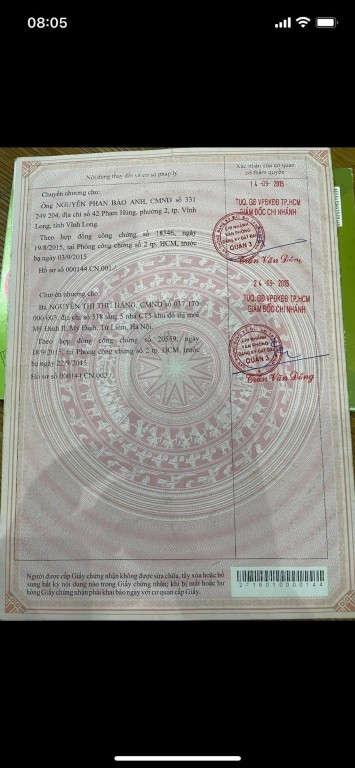 08:05
Nội dung thay đổi và cơ sở pháp lý
Xác nhận của cơ quan
có thẩm quyền
Chuyển nhượng cho:
Ông NGUYỄN PHAN BẢO ANH, CMND số 331
249 204, địa chỉ số 42 Phạm Hùng, phường 2, tp. Vĩnh
Long, tỉnh Vĩnh Long.
Theo hợp đồng công chứng số 18346, ngày
19/8/2015, tại Phòng công chứng số 2 tp. HCM, trước
bạ ngày 03/9/2015
Hồ sơ số 000144.CN.001./
14-09-2015
TUQ. GĐ VPĐKĐĐ TP.HCM
GIÁM ĐỐC CHI NHÁNH
CHI NHÁNH
VĂN PHÒNG
ĐĂNG KÝ ĐẤT ĐAI
QUẬN 3
Trần Văn Đông
Chuyển nhượng cho:
Bà NGUYỄN THỊ THU HẰNG, CMND số 037 170
000 003, địa chỉ số 518 tầng 5 nhà CT5 khu đô thị mới
Mỹ Đình II, Mỹ Đình, Từ Liêm, Hà Nội.
Theo hợp đồng công chứng số 20559, ngày
18/9/2015, tại Phòng công chứng số 2 tp. HCM, trước
bạ ngày 22/9/2015
Hồ sơ số 000144.CN.002./
24-09-2015
TUQ. GĐ VPĐKĐĐ TP.HCM
GIÁM ĐỐC CHI NHÁNH
CHI NHÁNH
VĂN PHÒNG
ĐĂNG KÝ ĐẤT ĐAI
QUẬN 3
Trần Văn Đông
Người được cấp Giấy chứng nhận không được sửa chữa, tẩy xóa hoặc bổ
sung bất kỳ nội dung nào trong Giấy chứng nhận; khi bị mất hoặc hư
hỏng Giấy chứng nhận phải khai báo ngay với cơ quan cấp Giấy.